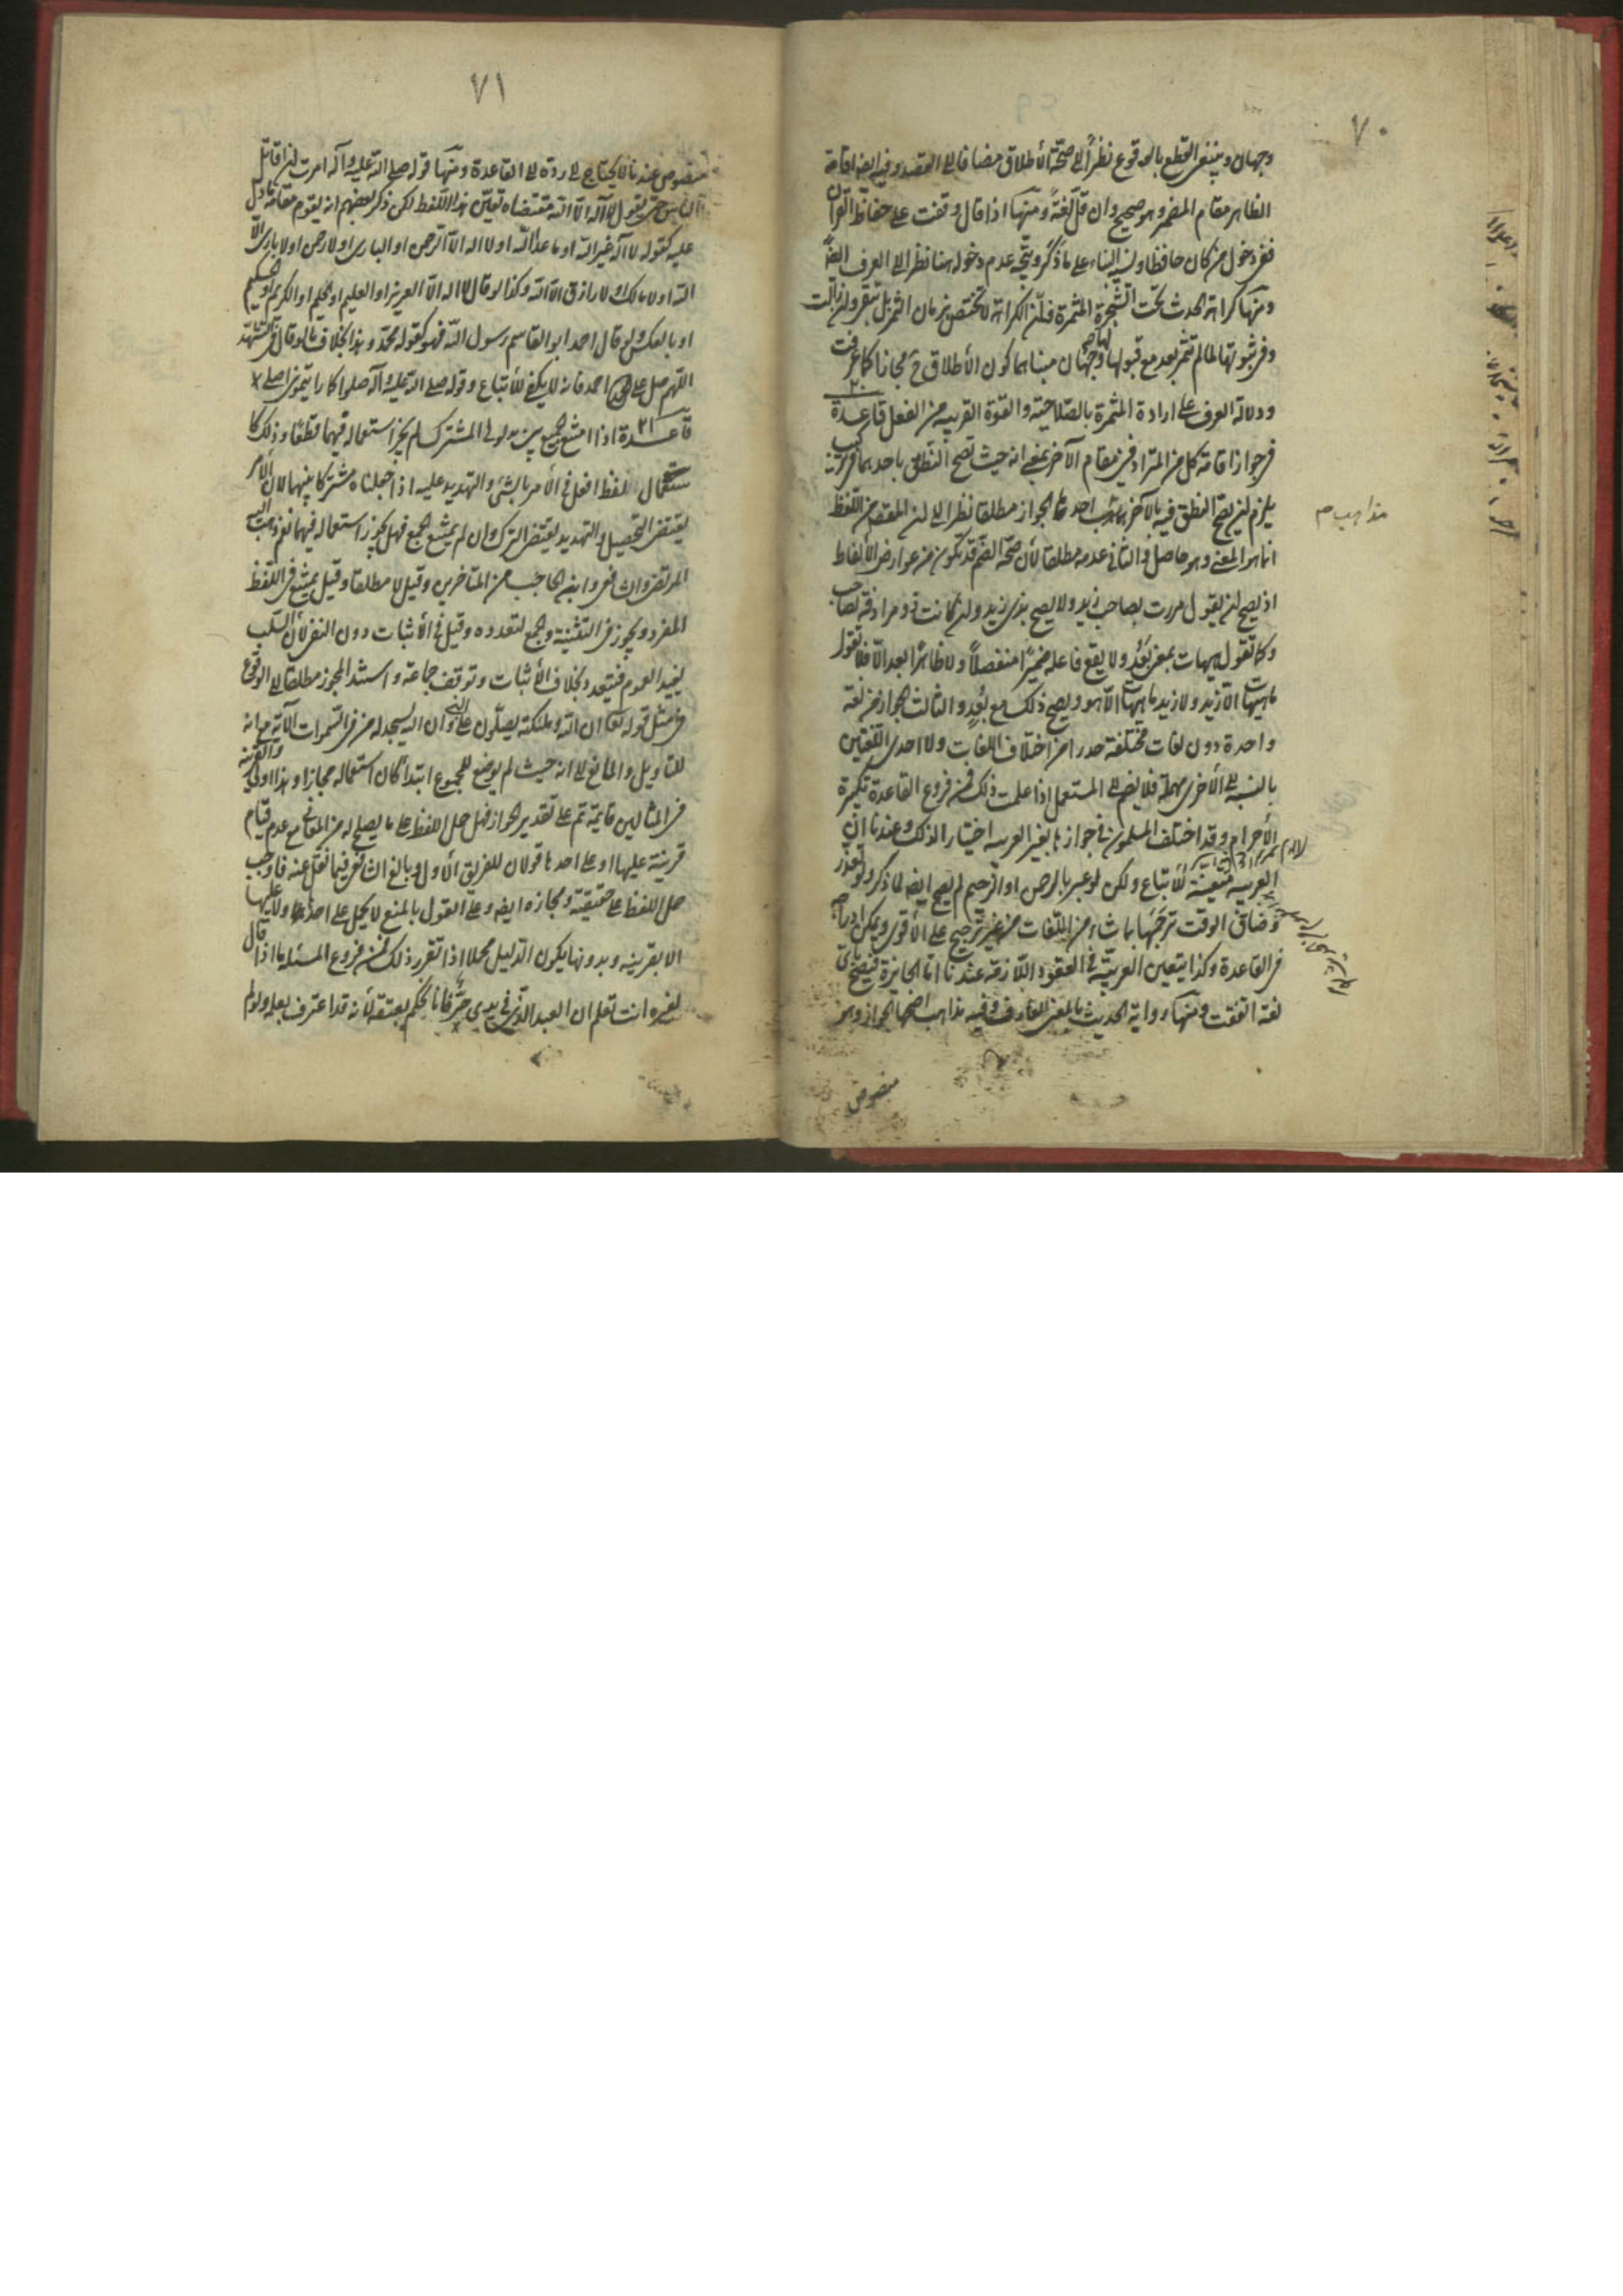 ٧٠
وجهان وينبغي القطع بالوقوع نظراً الى صحة الأطلاق مضافا الى القصد وفيه ايضا اقامة
الظاهر مقام المضمر وهو صحيح وان قل لغة ومنها اذا قال وقفت على حفاظ القرآن
ففي دخول من كان حافظا ونسيه البناء على ما ذكر ويتجه عدم دخوله هنا نظرا الى العرف ايضا
ومنها كراهة الحدث تحت الشجرة المثمرة فان الكراهة لا تختص بزمان الثمر بل تبقى وان زالت
وفي ثبوتها لما لم تثمر بعد مع قبولها لها وجهان مبناهما كون الأطلاق ح مجازا كما عرفت
ودلالة العرف على ارادة المثمرة بالصلاحية والقوة القريبة من الفعل قاعدة ٢٠
في جواز اقامة كل من المترادفين مقام الآخر بمعنى انه حيث تصح النطق باحدهما في تركيب
يلزم ان يصح النطق فيه بالآخر مذاهب احدها الجواز مطلقا نظرا الى ان المقصود من اللفظ
انما هو المعنى وهو حاصل والثاني عدمه مطلقا لأن صحة الضم قد تكون من عوارض الألفاظ
اذ يصح ان يقول مررت بصاحب زيد ولا يصح بذي زيد وان كانت ذو مرادفة لصاحب
وكما تقول هيهات بمعنى بعد ولا يقع فاعله ضميرا منفصلاً ولا ظاهرا بعد الا فلا تقول
ما هيهات الا زيد ولا زيد ما هيهات الا هو ويصح ذلك مع بعد والثالث الجواز من لغة
واحدة دون لغات مختلفة حذرا من اختلاف اللغات ولا احدى اللغتين
بالنسبة الى الأخرى مهملة فلا يضم الى المستعمل اذا علمت ذلك فمن فروع القاعدة تكبيرة
الأحرام وقد اختلف المسلمون في جوازها بغير العربية اختيارا لذلك وعندنا ان
العربية متعينة للأتباع ولكن لو عبر بالرحمن او الرحيم لم يصح ايضا لما ذكر ولو تعذر
وضاق الوقت ترجمها بما شاء من اللغات من غير ترجيح على الأقوى ويمكن ادراجه
في القاعدة وكذا يتعين العربية في العقود اللازمة عندنا اما الجايزة فيصح باي
لغة اتفقت ومنها رواية الحديث بالمعنى للعارف وفيه مذاهب اصحها الجواز وهو
منصوص
مذاهب م
٧١
منصوص عندنا لا يحتاج الى رده الى القاعدة ومنها قوله صلى الله عليه وآله امرت ان اقاتل
الناس حتى يقولوا لا اله الا الله مقتضاه تعين هذا اللفظ لكن ذكر بعضهم انه يقوم مقامه ما دل
عليه كقوله لا اله غير الله او ما عدا الله او لا اله الا الرحمن او الباري او لا رحمن او لا باري الا
الله او لا مالك او لا رازق الا الله وكذا لو قال لا اله الا العزيز او العليم او الحليم او الكريم او الحكيم
او بالعكس ولو قال احمد ابو القاسم رسول الله فهو كقوله محمد وهذا بخلاف ما لو قال في التشهد
اللهم صل على احمد فانه لا يكفي للأتباع وقوله صلى الله عليه وآله صلوا كما رايتموني اصلي
قاعدة ٢١ اذا امتنع الجمع بين مدلولي المشترك لم يجز استعماله فيهما قطعا وذلك كا
ستعمال لفظ افعل في الأمر بالشئ والتهديد عليه اذا جعلناه مشتركا بينهما لان الأمر
يقتضي التحصيل والتهديد يقتضي الترك وان لم يمتنع الجمع فهل يجوز استعماله فيهما نعم وذهب اليه
المرتضى والشافعي وابن الحاجب من المتاخرين وقيل لا مطلقا وقيل يمتنع في اللفظ
المفرد ويجوز في التثنية والجمع لتعدده وقيل في الأثبات دون النفي لان السلب
يفيد العموم فيتعدد بخلاف الأثبات وتوقف جماعة واستند المجوز مطلقا الى الوقوع
في مثل قوله تعالى ان الله وملئكته يصلون على النبي وان الله يسجد له من في السموات الآية مع انه
للتأويل والمانع الى انه حيث لم يوضع للمجموع ابتداءً كان استعماله مجازا وهذا اولى والقرينة
في المثالين قايمة ثم على تقدير الجواز فهل حمل اللفظ على ما يصلح له من المعاني مع عدم قيام
قرينة عليها او على احدها قولان للفريق الأول وبالغ الشافعي فيما نقل عنه فاوجب
حمل اللفظ على حقيقته ومجازه ايضا وعلى القول بالمنع لا يحمل على احدها ولا عليها
الا بقرينة وبدونها يكون الدليل مجملا اذا تقرر ذلك فمن فروع المسئلة ما اذا قال
لغيره انت تعلم ان العبد الذي في يدي حر فانا نحكم بعتقه لأنه قد اعترف بعلمه ولو لم